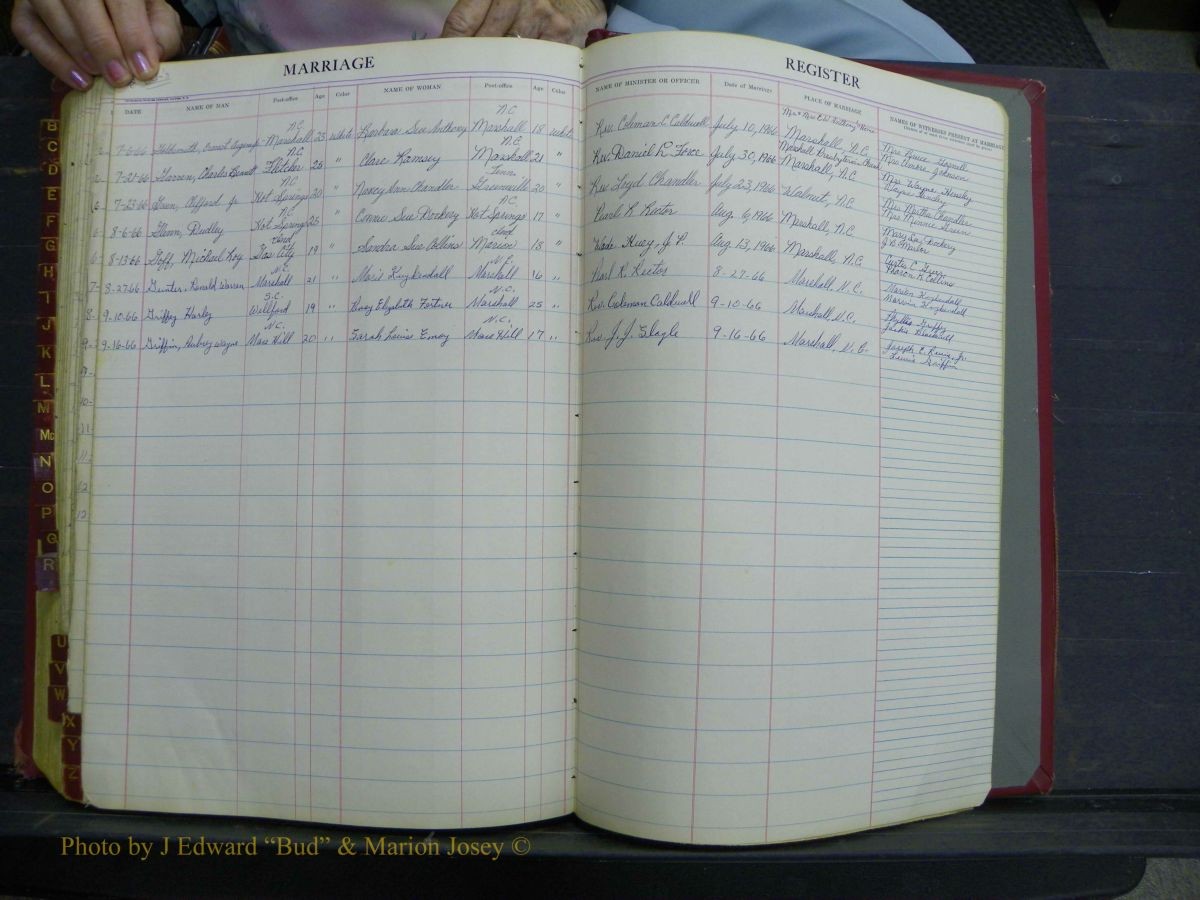 MARRIAGE REGISTER
DATE NAME OF MAN Post-office Age Color NAME OF WOMAN Post-office Age Color NAME OF MINISTER OR OFFICER Date of Marriage PLACE OF MARRIAGE NAMES OF WITNESSES PRESENT AT MARRIAGE
N.C. N.C.
7-6-66 Goldsmith, Marshall 23 white Barbara Sue Anthony Marshall 18 white Rev. Coleman C Caldwell July 10, 1966 Marshall, N.C. Mrs. Bruce Norvell
N.C. N.C. Marshall Presbyterian Church Mrs. Johnson
7-21-66 Garren, Charles Fletcher 28 " Clara Ramsey Marshall 21 " Rev. Daniel R. Force July 30, 1966 Marshall, N.C. Mrs Wayne Hensley
N.C. Tenn Wayne Hensley
7-23-66 Green, Clifford Jr Hot Springs 20 " Nancy Ann Chandler Greeneville 20 " Rev Loyd Chandler July 23, 1966 Walnut, N.C. Mrs Martha Chandler
N.C. N.C. Mrs Minnie Green
8-6-66 Gunn, Dudley Hot Springs 25 " Connie Sue Dockery Hot Springs 17 " Pearl R Rector Aug. 6, 1966 Marshall, N.C. Mary Lou Dockery
Ind Ind
8-13-66 Goff, Michael Roy Gas City 19 " Sandra Sue Collins Marion 18 " Wade Huey, J.P. Aug 13, 1966 Marshall, N.C. Curtis C.
N.C. N.C. Sharon R. Collins
8-27-66 Gunter, Ronald Warren Marshall 21 " Marie Kuykendall Marshall 16 " Pearl R. Rector 8-27-66 Marshall, N.C. Marion Kuykendall
S.C. N.C. Marvin Kuykendall
9-10-66 Griffey Harley Wellford 19 " Roxy Elizabeth Fortner Marshall 25 " Rev. Coleman Caldwell 9-10-66 Marshall, N.C. Phyllis Griffey
N.C. N.C.
9-16-66 Griffin, Aubrey Wayne Mars Hill 20 " Sarah Louise Emory Mars Hill 17 " Rev. J.J. Slagle 9-16-66 Marshall, N.C. Joseph E. Jr.
Griffin
B
C
D
E
F
G
H
I
J
K
L
M
Mc
N
O
P
Q
R
U
V
W
X
Y
Z
Photo by J Edward “Bud” & Marion Josey ©